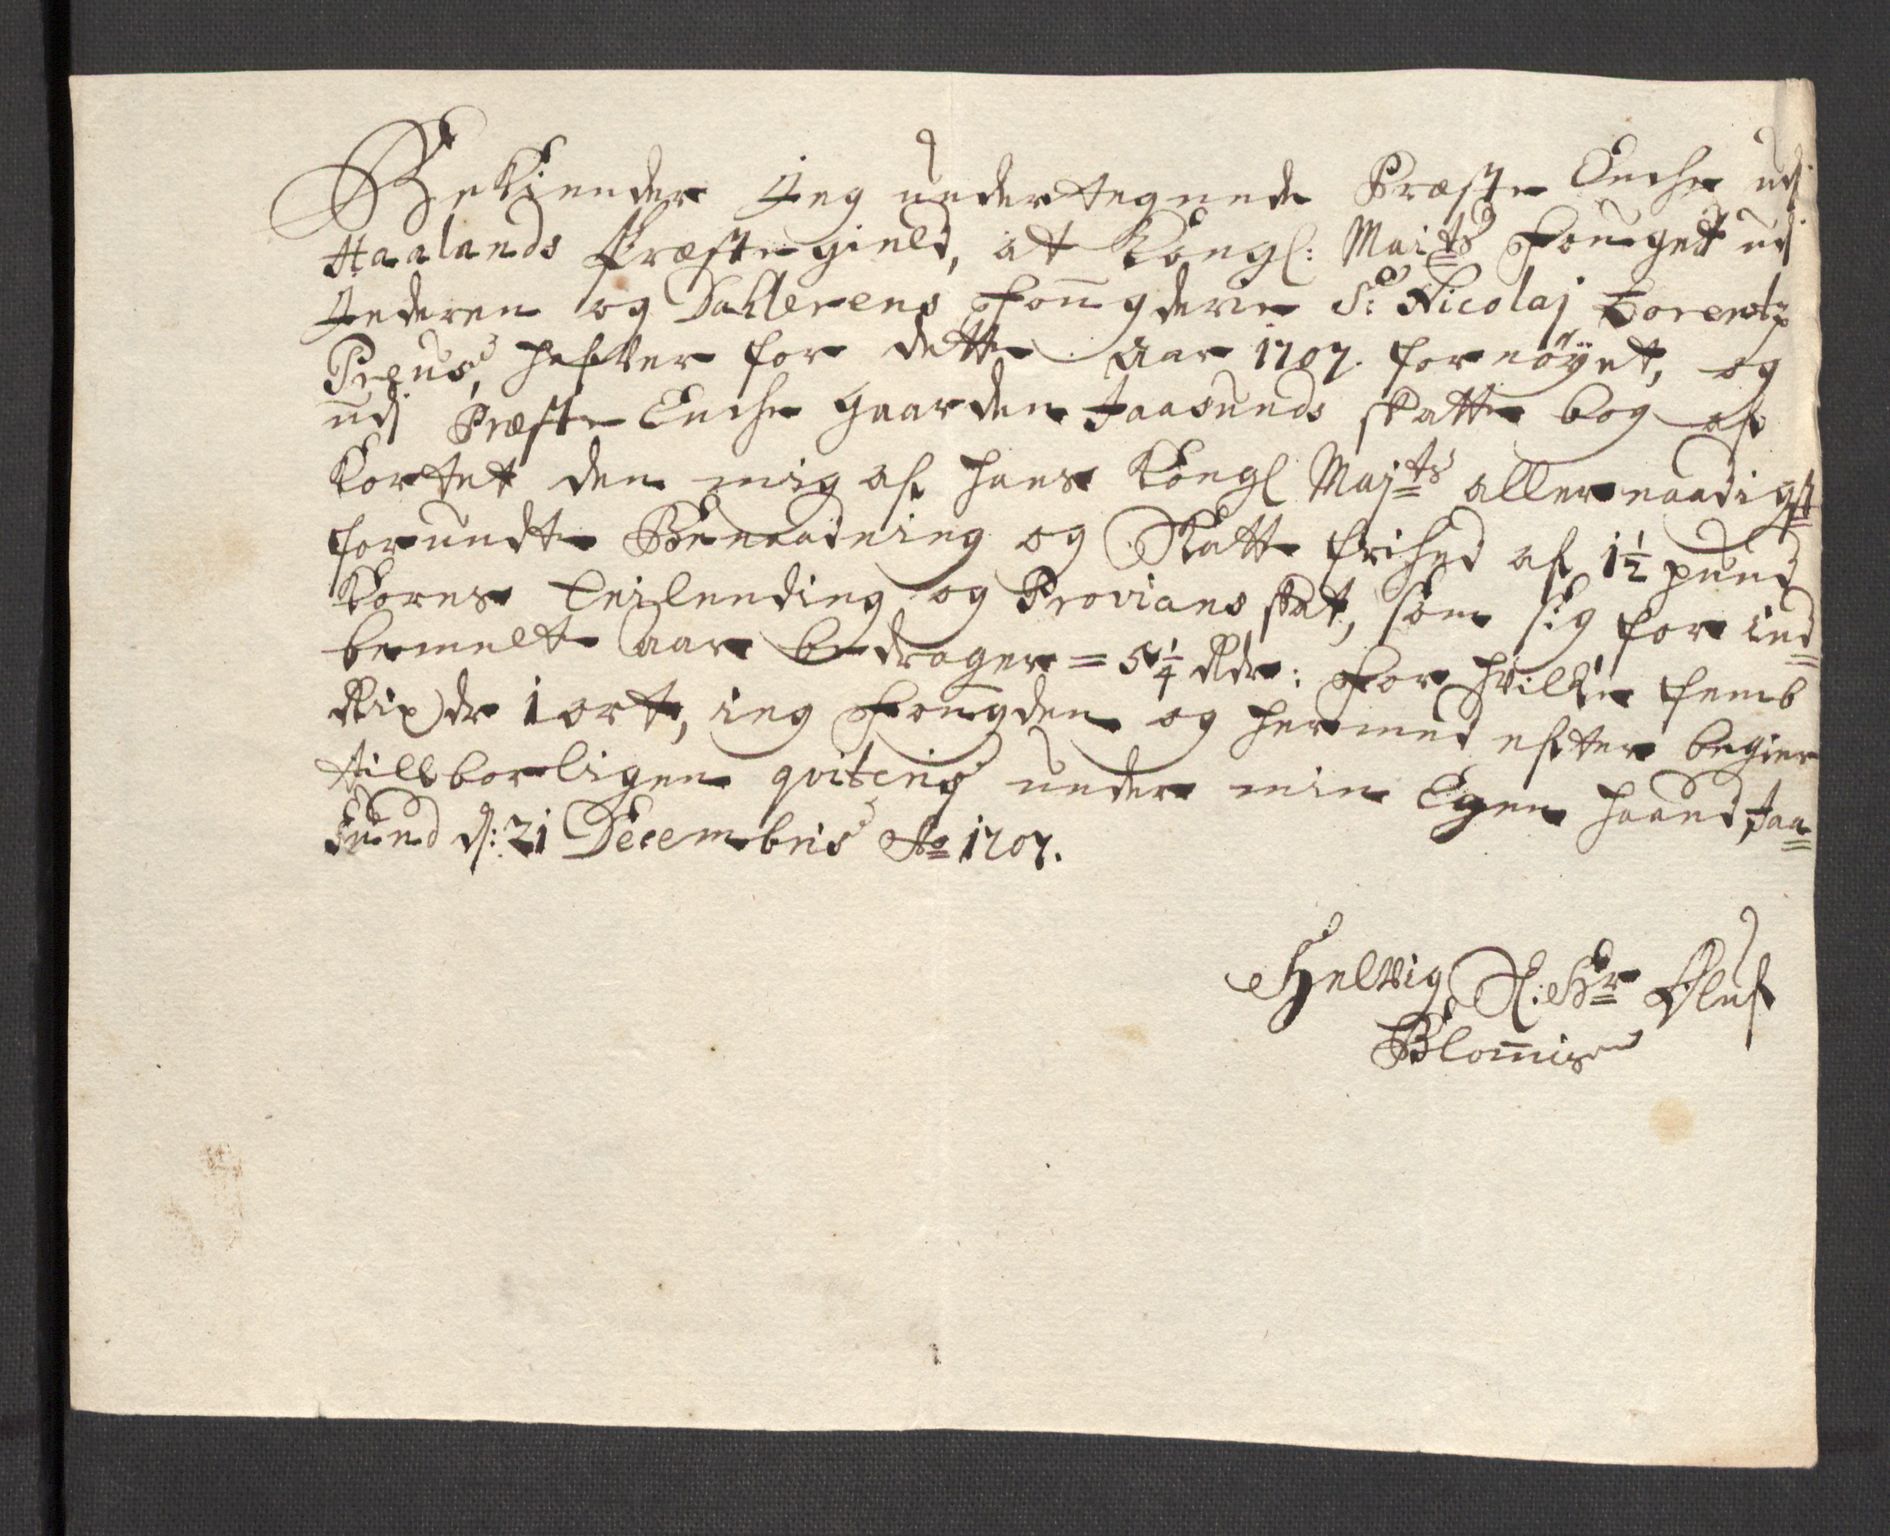 Bekiender Jeg undertegnede Præste Enche udj
Haalands Præstegield, at Kongl: Maits Fouget udj
Jederen og Dahlerens Fougderie Sr Nicolaj Lorentz
Preus, hafver for dette Aar 1707. fornöyet, og
udj Præste Enche gaarden Jaasunds skatte bog af
kortet den mig af hans Kongl Majts allernaadigst
forundte Benaadning og Skatte frihed af 1½ pund
Korns Leilending og Provians skat, som sig for ind
bemelte aar bedrager = 5¼ Rdr: For hvilke femb
Rixdr 1 ort, ieg Fougden og hermed efter begier
tillborligen qviteris under min Egen haand, Jaa=
sund d: 21 Decembris Ao 1707.
Helvig Sl: Hr Oluf
Blomis